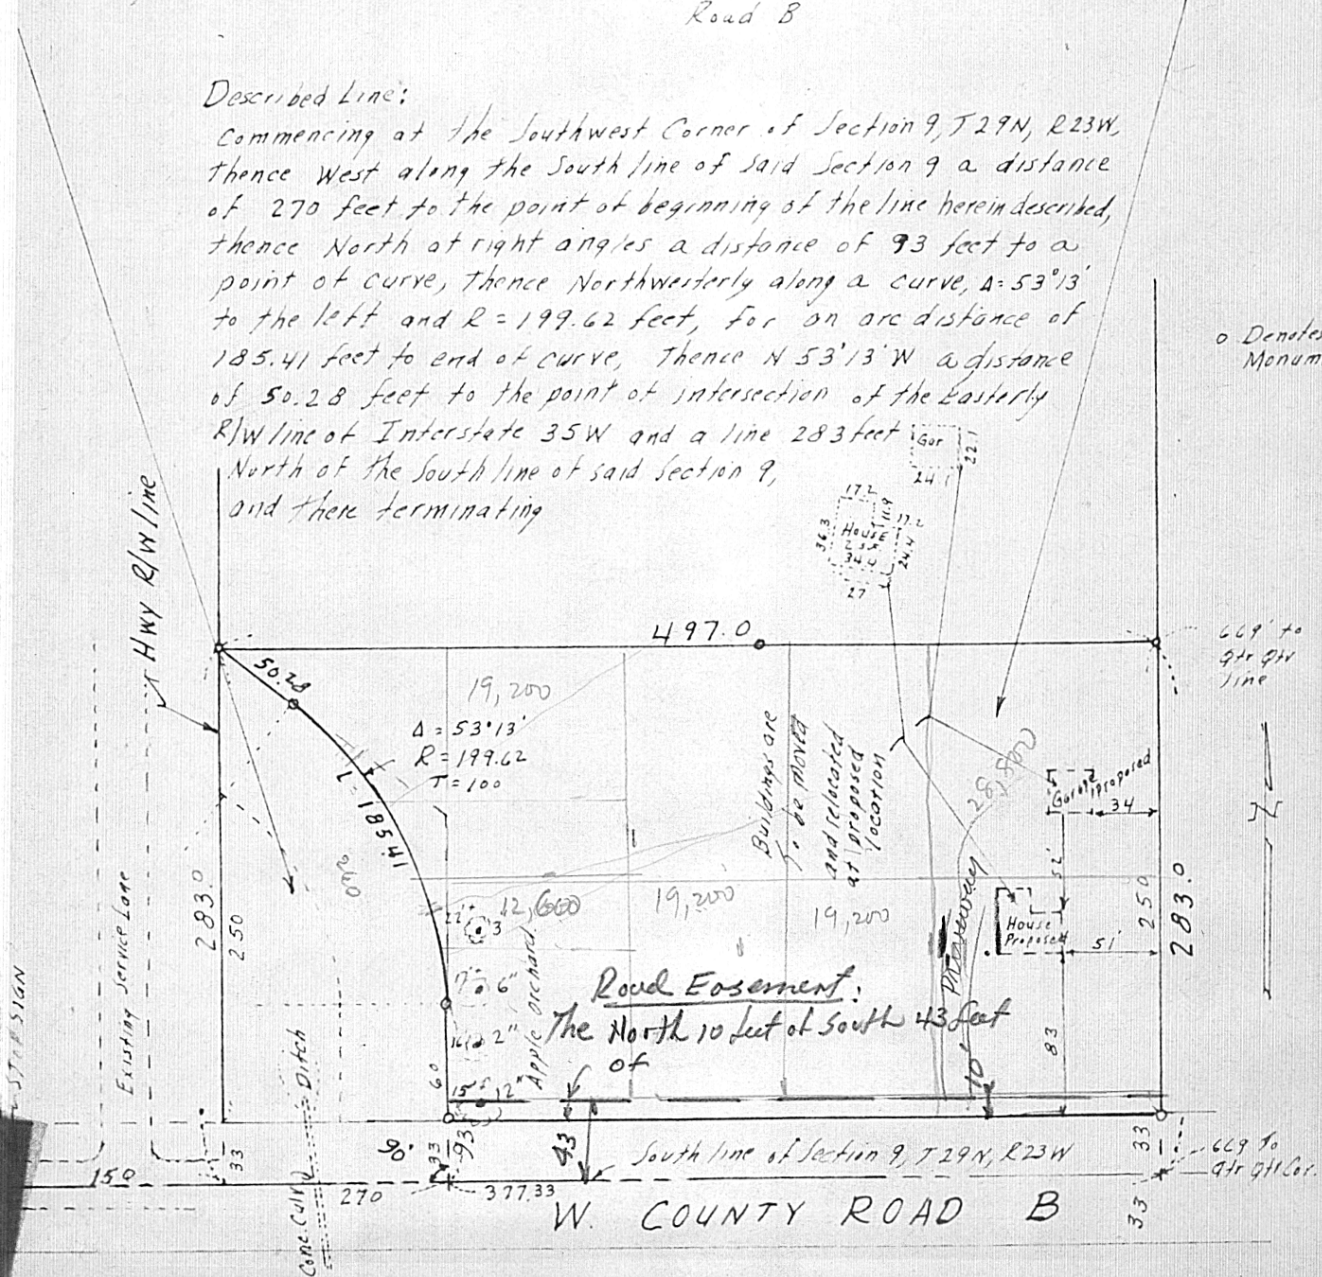 Road B
Described Line:
Commencing at the Southwest Corner of Section 9, T29N, R23W,
thence West along the South line of said Section 9 a distance
of 270 feet to the point of beginning of the line herein described,
thence North at right angles a distance of 93 feet to a
point of curve, Thence Northwesterly along a curve, Δ=53°13'
to the left and R=199.62 feet, for an arc distance of
185.41 feet to end of curve, Thence N 53°13' W a distance
of 50.28 feet to the point of intersection of the Easterly
R/W line of Interstate 35W and a line 283 feet
North of the South line of said Section 9,
and there terminating
o Denotes
Monum
Gar
22.1
24.1
17.2
11.9
17.2
36.3
House
34.4
24.4
27
Hwy R/W line
497.0
669' to
Qtr Qtr
line
50.28
19,200
Δ = 53°13'
R = 199.62
T = 100
L = 185.41
Buildings are
to be moved
and relocated
at proposed
location
28,800
Garage
Proposed
34
52'
283.0
250
250
283.0
Existing Service Lane
12,600
19,200
19,200
House
Proposed
51'
Driveway
3
6"
2"
15'
12"
Apple Orchard
Road Easement:
The North 10 feet of South 43 feet
of
83
10'
60
Ditch
STOP SIGN
33
90°
33
93
43
South line of Section 9, T29N, R23W
33
669 to
Qtr Qtr Cor.
150
270
377.33
Conc. Culv.
W. COUNTY ROAD B
33